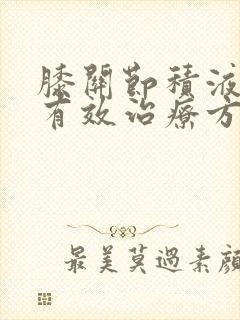 膝關節積液
有效治療方
最美莫過素顏